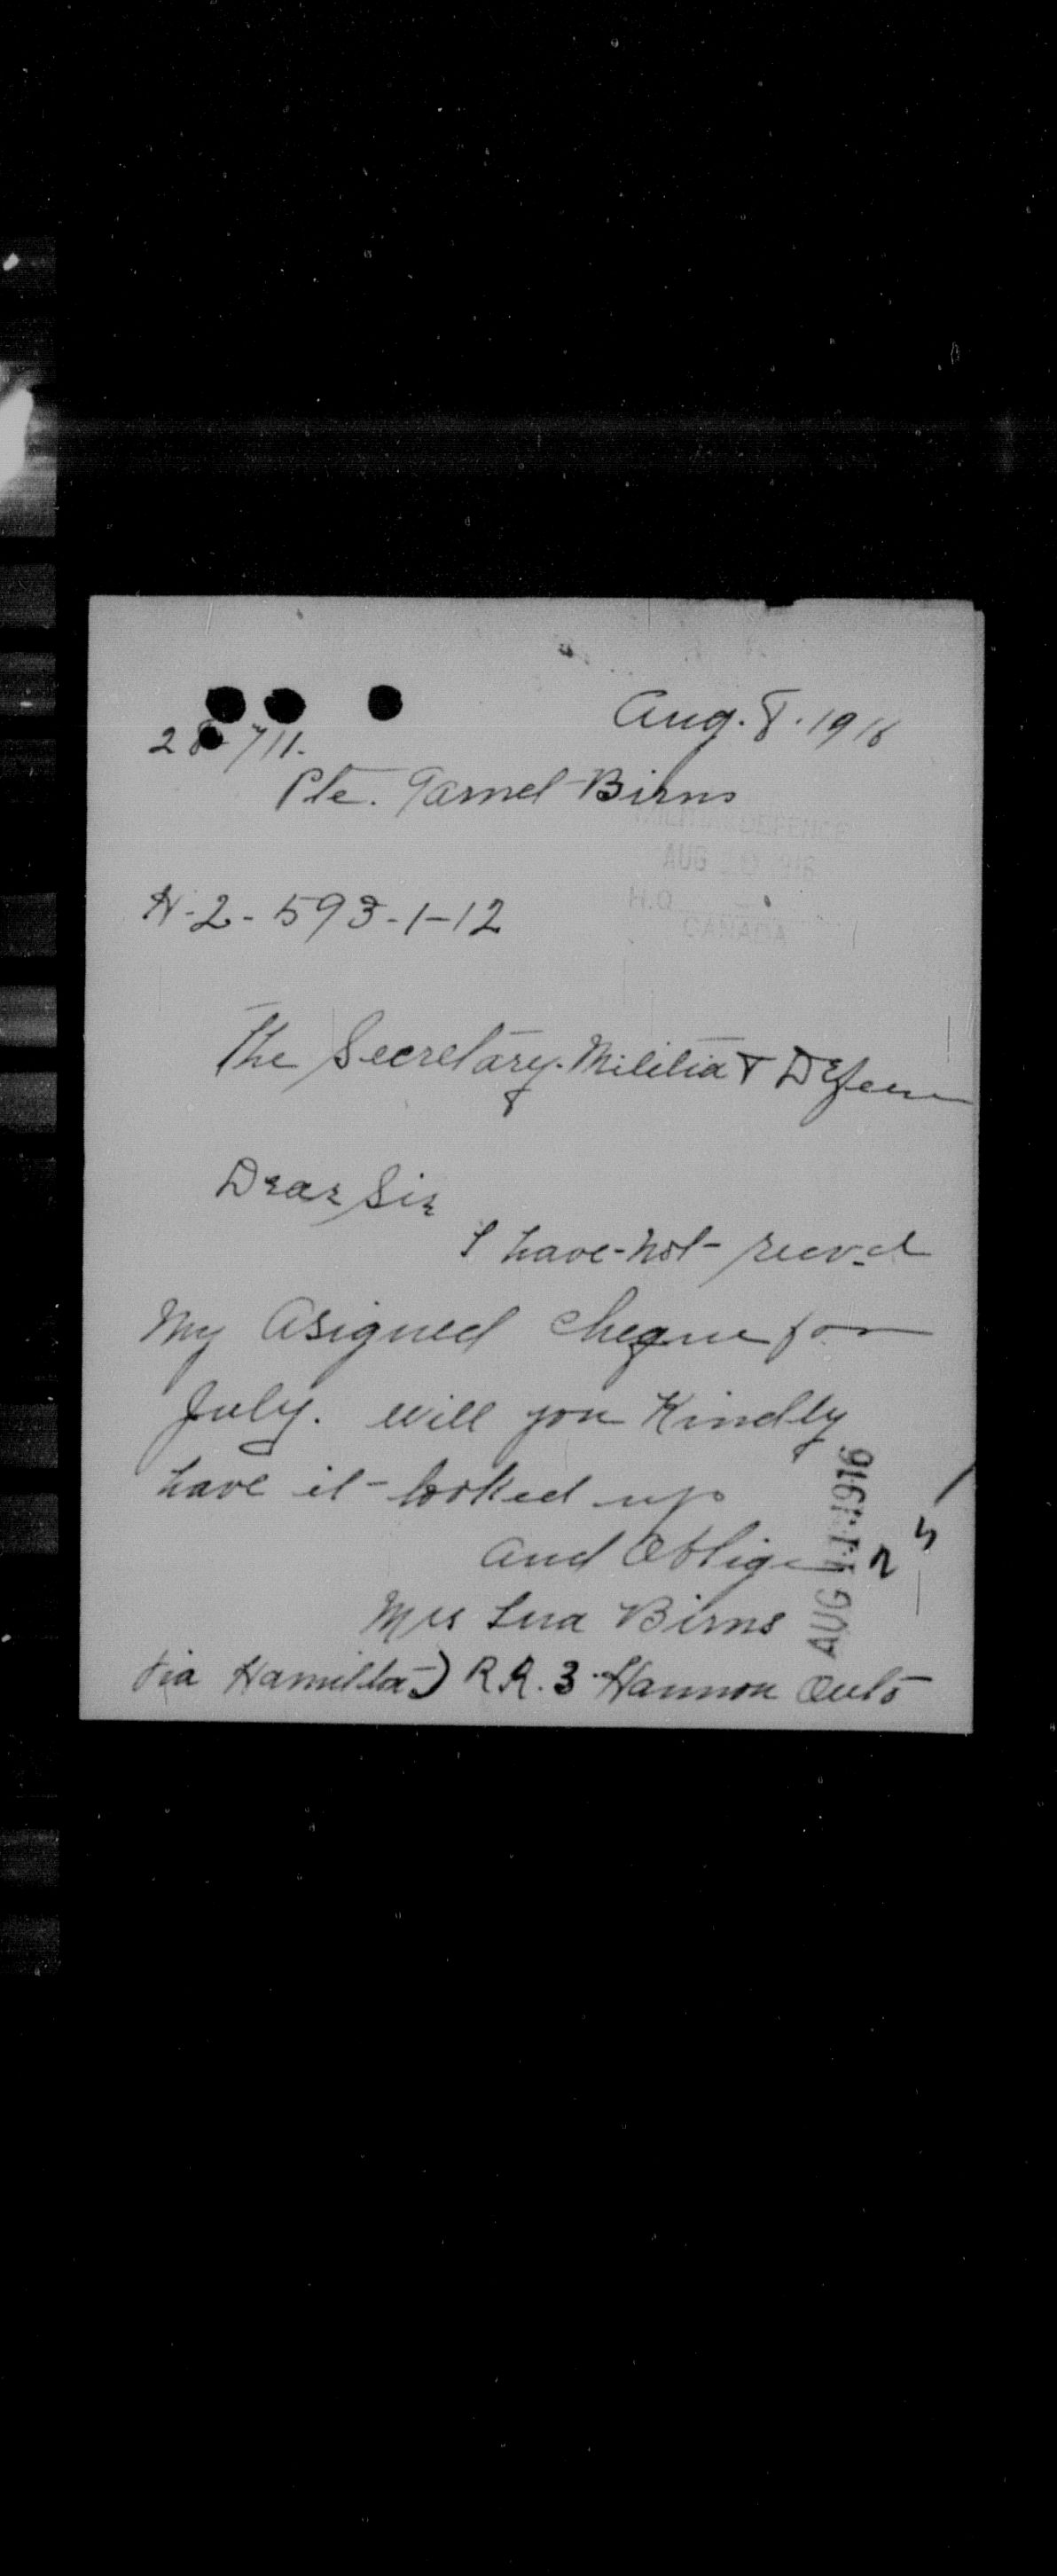 Aug. 8. 1916
28-711.
Pte. Garnet Birns
MILITIA & DEFENCE
AUG 10 1916
H.Q.
CANADA
H-2-593-1-12
The Secretary. Militia & Defence
Dear Sir
I have not recv.d
My Asigned cheque for
July. will you Kindly
have it looked up
and Oblige
AUG 11 1916
Mrs Birns
Via Hamilton) R.R. 3 Hannon Onto